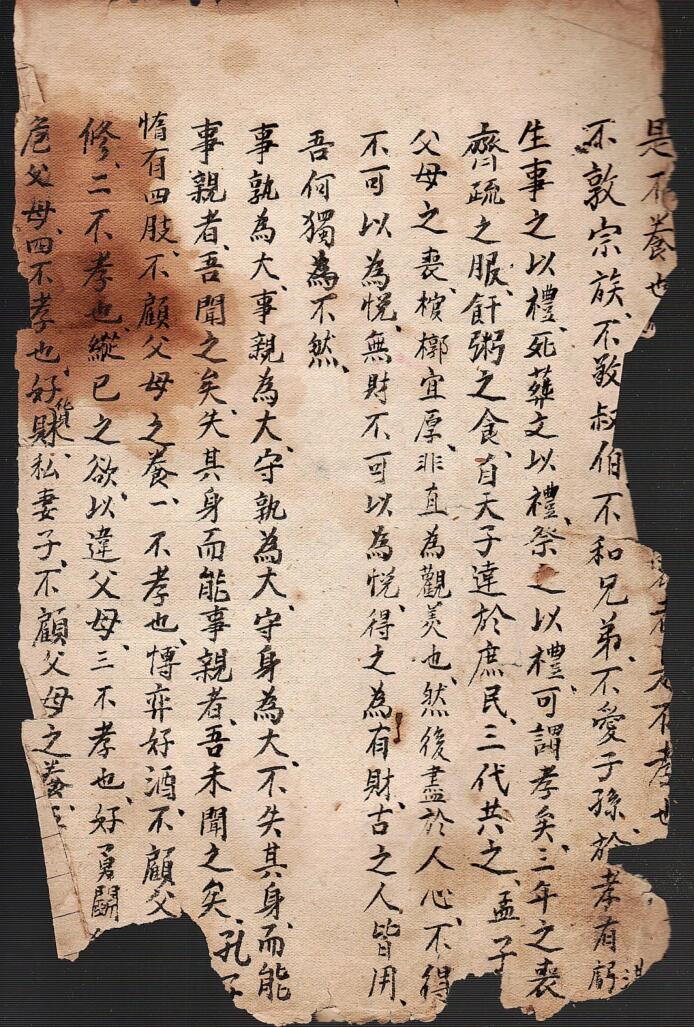 是不養也
者是不孝也
不敦宗族、不敬叔伯不和兄弟、不愛子孫、於孝有虧
生事之以禮、死葬文以禮、祭之以禮、可謂孝矣、三年之喪
齊疏之服、飦粥之食、自天子達於庶民、三代共之、孟子
父母之喪、棺槨宜厚、非直為觀美也、然後盡於人心、不得
不可以為悅、無財不可以為悅、得之為有財、古之人皆用、
吾何獨為不然、
事孰為大、事親為大、守孰為大、守身為大、不失其身、而能
事親者、吾聞之矣、失其身而能事親者、吾未聞之矣、孔子
惰有四肢、不顧父母之養、一不孝也、博弈好酒、不顧父
修、二不孝也、縱已之欲、以違父母、三不孝也、好勇鬭
危父母、四不孝也、好貨財、私妻子、不顧父母之養、五